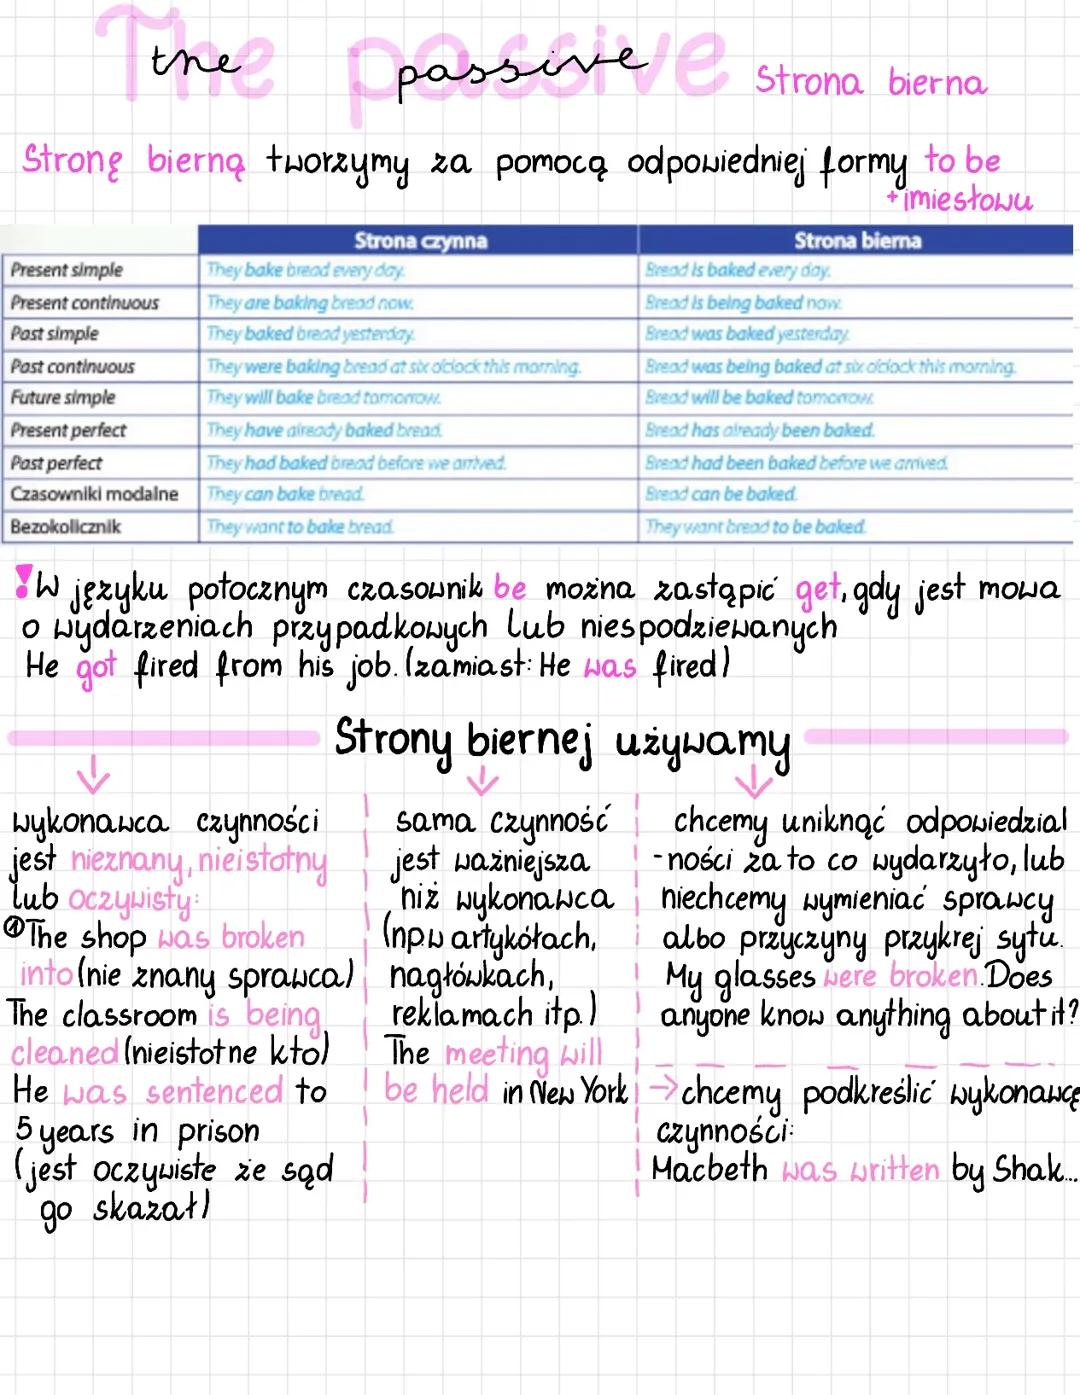 The passive
the passive Strona bierna
Stronę bierną tworzymy za pomocą odpowiedniej formy to be
+imiesłowu
Strona czynna Strona bierna
Present simple They bake bread every day. Bread is baked every day.
Present continuous They are baking bread now. Bread is being baked now.
Past simple They baked bread yesterday. Bread was baked yesterday.
Past continuous They were baking bread at six o'clock this morning. Bread was being baked at six o'clock this morning.
Future simple They will bake bread tomorrow. Bread will be baked tomorrow.
Present perfect They have already baked bread. Bread has already been baked.
Past perfect They had baked bread before we arrived. Bread had been baked before we arrived.
Czasowniki modalne They can bake bread. Bread can be baked.
Bezokolicznik They want to bake bread. They want bread to be baked.
!W języku potocznym czasownik be można zastąpić get, gdy jest mowa
o wydarzeniach przypadkowych lub niespodziewanych
He got fired from his job. (zamiast: He was fired)
Strony biernej używamy
wykonawca czynności
jest nieznany, nieistotny
lub oczywisty:
①The shop was broken
into (nie znany sprawca)
The classroom is being
cleaned (nieistotne kto)
He was sentenced to
5 years in prison
(jest oczywiste że sąd
go skazał)
sama czynność
jest ważniejsza
niż wykonawca
(np w artykółach,
nagłówkach,
reklamach itp.)
The meeting will
be held in New York
chcemy uniknąć odpowiedzial
-ności za to co wydarzyło, lub
niechcemy wymieniać sprawcy
albo przyczyny przykrej sytu.
My glasses were broken. Does
anyone know anything about it?
→chcemy podkreślić wykonawcę
czynności:
Macbeth was written by Shak...